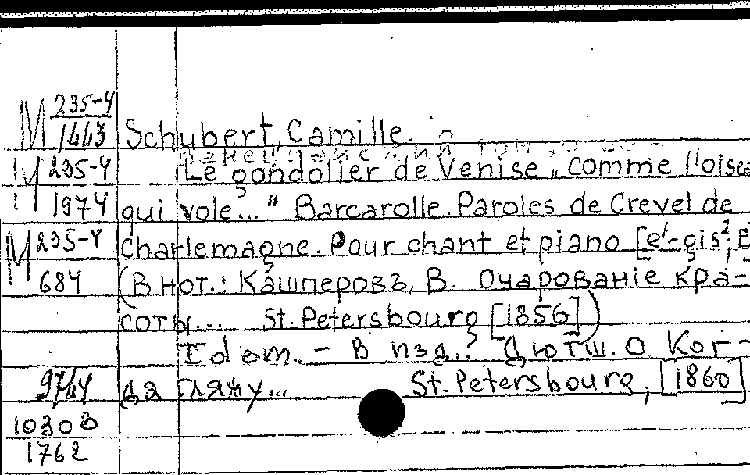 M 235-4
1443
Schubert, Camille.
M 235-4
Le gondolier de Venise „Comme l'oise
1974
qui vole..." Barcarolle. Paroles de Crevel de
M 235-4
Charlemagne. Pour chant et piano [e¹-cis²; E
684
(В нот.: Кашперовъ, В. Очарованiе кра-
соты... St. Petersbourg [1856])
Idem. – В изд.: Дютш. О Ког-
да гляжу... St. Petersbourg, [1860]
10308
1762